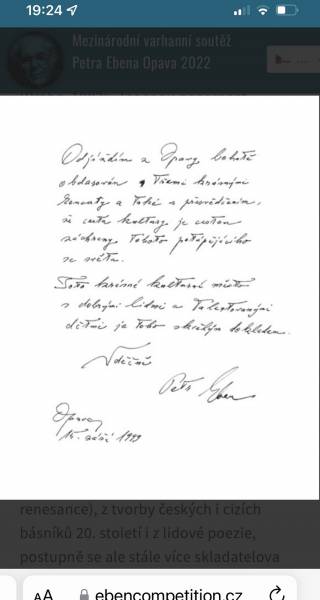 19:24
Mezinárodní varhanní soutěž
Petra Ebena Opava 2022
Odjíždím z Opavy bohatě
obdarován třemi krásnými
koncerty a také s přesvědčením,
že cesta kultury je cestou
záchrany tohoto potápějícího
se světa.
Toto krásné kulturní město
s dobrými lidmi a talentovanými
dětmi je toho skvělým dokladem.
Vděčně
Petr Eben
Opava,
září 1999
renesance), z tvorby českých i cizích
básníků 20. století i z lidové poezie,
postupně se ale stále více skladatelova
AA
ebencompetition.cz